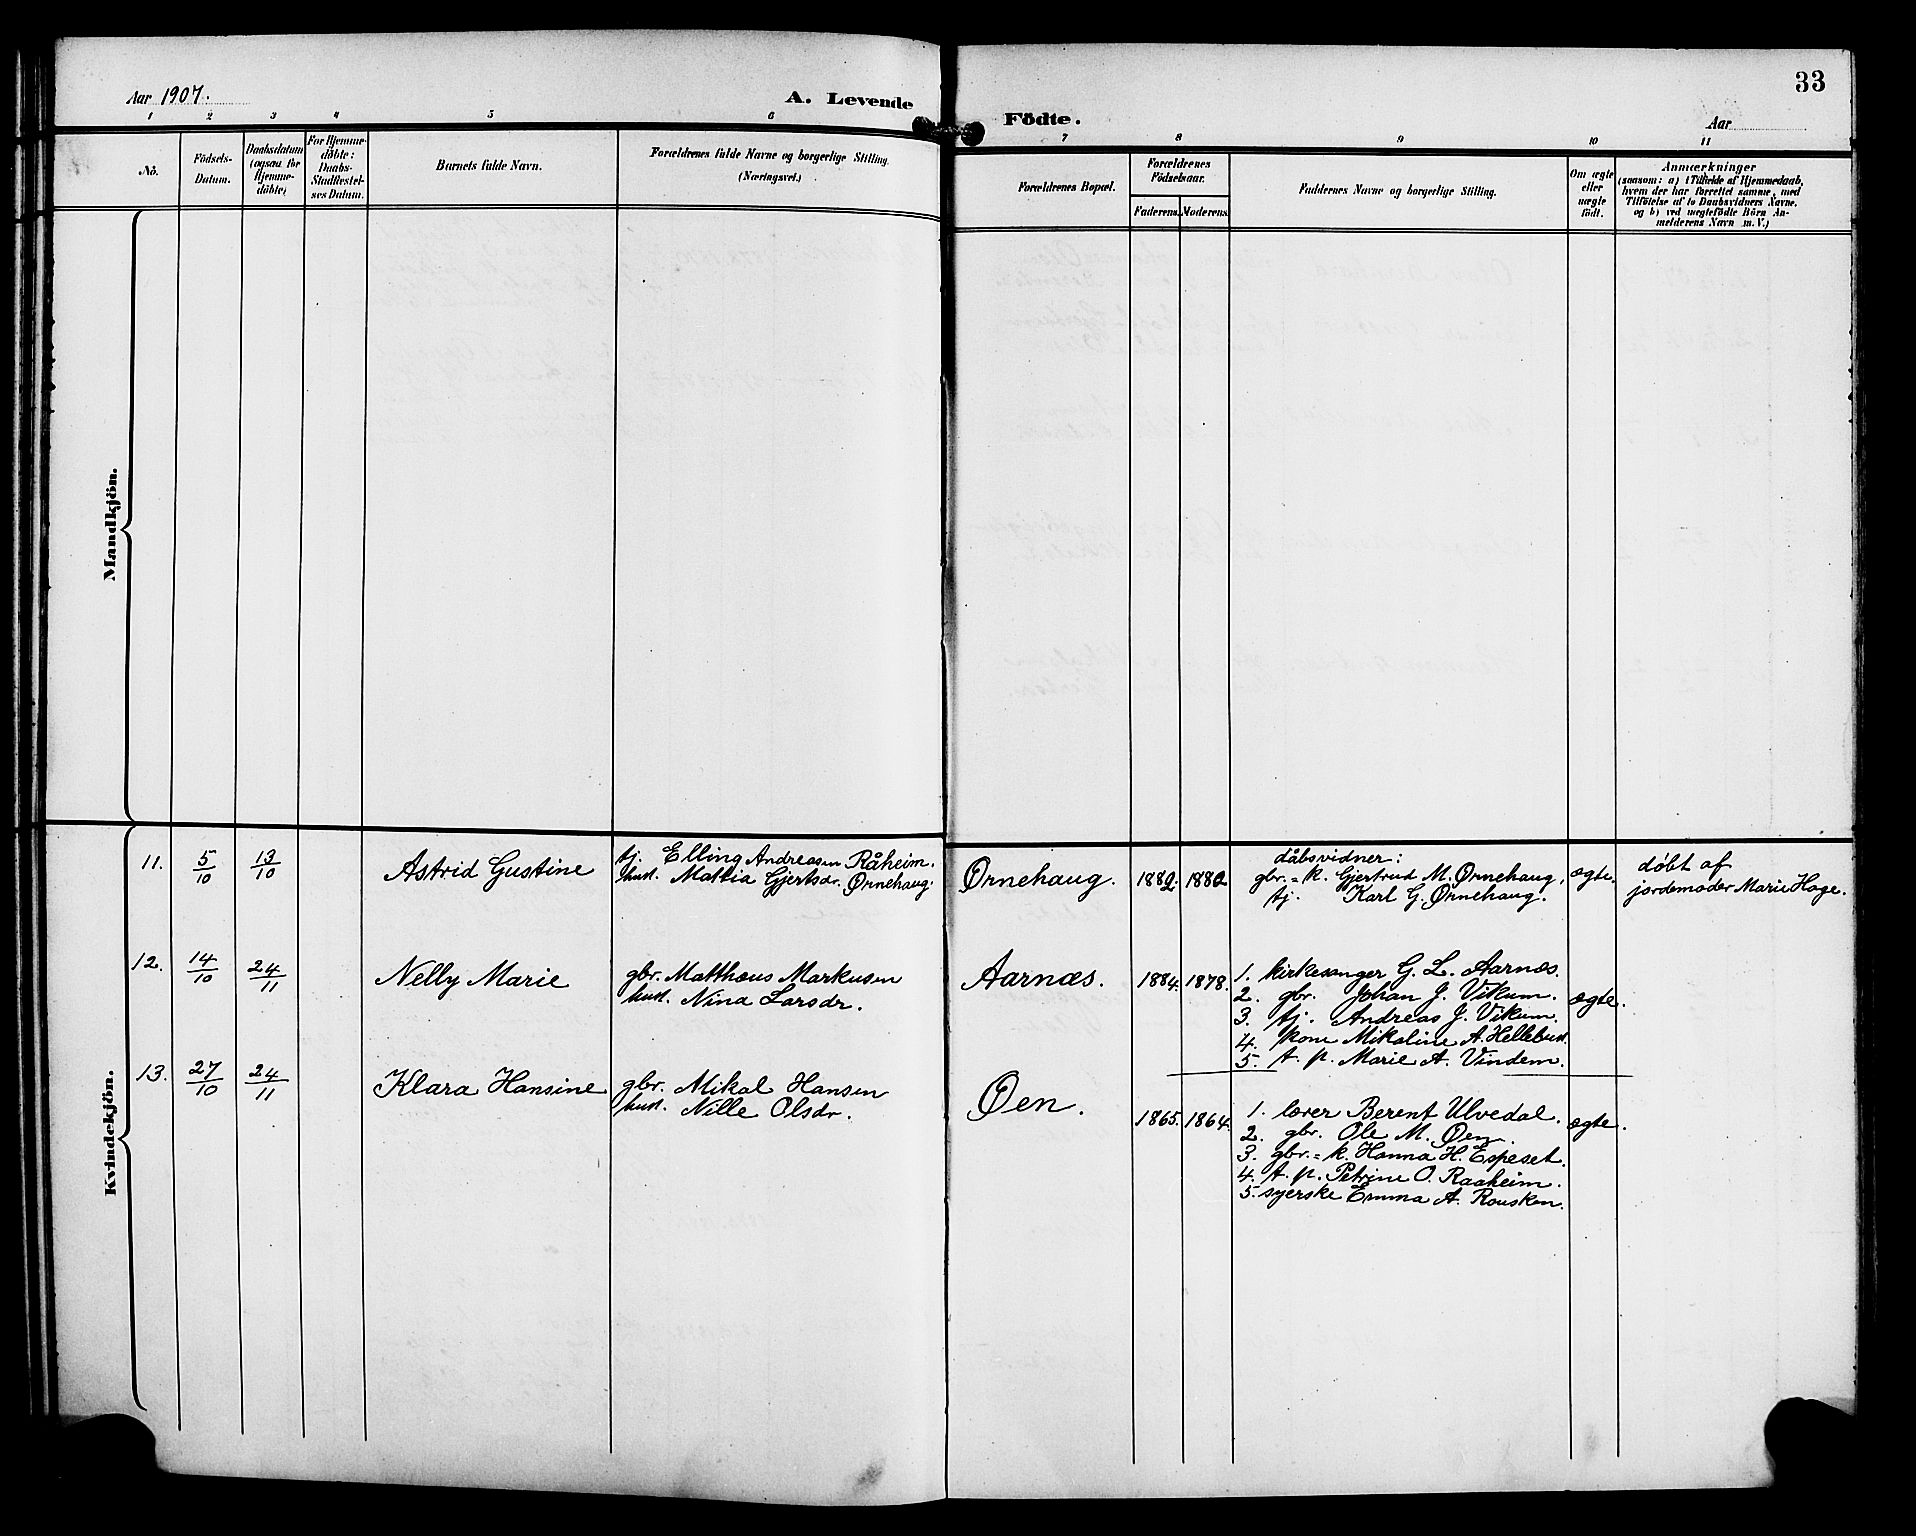 33
Aar 1907.
A. Levende
Födte.
Aar
1 2 3 4 5 6 7 8 9 10 11
No.
Födsels-
Datum.
Daabsdatum
(ogsaa for
Hjemme-
döbte)
For Hjemme-
döbte:
Daabs-
Stadfæstel-
ses Datum.
Barnets fulde Navn.
Forældrenes fulde Navne og borgerlige Stilling.
(Næringsvei.)
Forældrenes Bopæl.
Forældrenes
Födselsaar.
Faderens.
Moderens.
Faddernes Navne og borgerlige Stilling.
Om ægte
eller
uægte
födt.
Anmærkninger
(saasom: a) i Tilfælde af Hjemmedaab,
hvem der har forrettet samme, med
Tilföielse af to Daabsvidners Navne,
og b) ved uægtefödte Börn An-
melderens Navn m. V.)
Mandkjön.
Kvindekjön.
11. 5/10 13/10 Astrid Gustine
tj. Elling Andreasen Råheim.
hust. Mattia Gjertsdr. Ørnehaug.
Ørnehaug. 1882. 1882
dåbsvidner:
gbr.=k. Gjertrud M. Ørnehaug,
tj. Karl G. Ørnehaug.
ægte.
døbt af
jordemoder Marie Hage.
12. 14/10 24/11 Nelly Marie
gbr. Matthæus Markusen
hust. Nina Larsdr.
Aarnæs. 1884. 1878.
1. kirkesanger G. L. Aarnæs.
2. gbr. Johan J. Vikum.
3. tj. Andreas J. Vikum.
4. kone Mikaline A. Hellebust.
5. t. p. Marie A. Vindem.
ægte.
13. 27/10 24/11 Klara Hansine
gbr. Mikal Hansen
hust. Nille Olsdr.
Øen. 1865. 1864.
1. lærer Berent Ulvedal.
2. gbr. Ole M. Øen.
3. gbr.=k. Hanna H. Espeset.
4. t. p. Petrine O. Raaheim.
5. syerske Emma A. Rousken.
ægte.